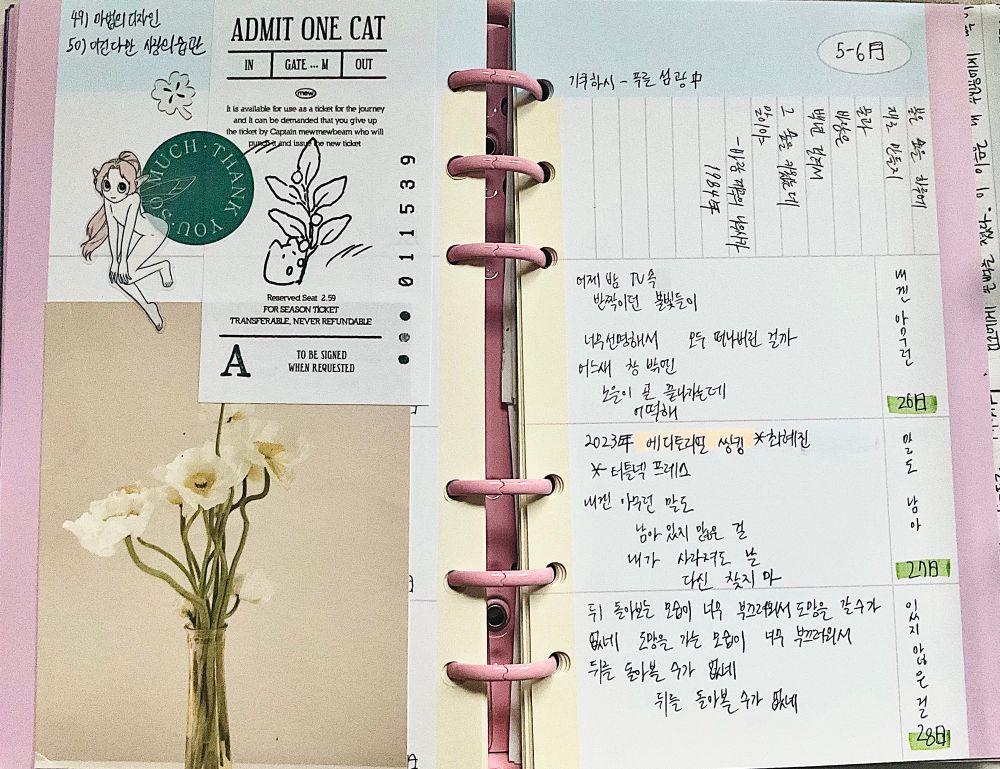 49) 마법의 디자인
50) 이건 다만 사랑의 습관
ADMIT ONE CAT
IN GATE ... M OUT
mew
It is available for use as a ticket for the journey
and it can be demanded that you give up
the ticket by Captain mewmewbeam who will
punch it and issue the new ticket
0011539
THANK YOU SO MUCH
Reserved Seat 2.59
FOR SEASON TICKET
TRANSFERABLE, NEVER REFUNDABLE
A
TO BE SIGNED
WHEN REQUESTED
5-6月
기쿠하시 - 푸른 섬광 中
불은 숲을 하루에
재로 만들지
물과
바람은
백년 걸려서
그 숲을 키웠는데
말이야
- 바람계곡의 나우시카
1984年
어제 밤 TV속
반짝이던 불빛들이
너무 선명해서 모두 떠나버린 걸까
어느새 창 밖엔
노을이 곧 끝나가는데
어떡해
내겐 아무런
26日
2023年 에디토리얼 씽킹 *최혜진
*터틀넥 프레스
내겐 아무런 말도
남아 있지 않은 걸
내가 사라져도 날
다신 찾지 마
말도 남아
27日
뒤 돌아보는 모습이 너무 부끄러워서 도망을 갈 수가
없네 도망을 가는 모습이 너무 부끄러워서
뒤를 돌아볼 수가 없네
뒤를 돌아볼 수가 없네
있지 않은 걸
28日